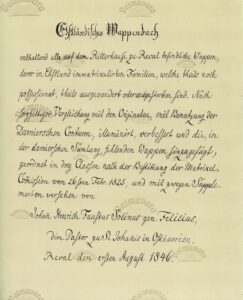 Ehstländisches Wappenbuch
enthaltend alle auf dem Ritterhause zu Reval befindliche Wappen,
derer in Ehstland immatriculirten Familien, welche theils noch
possessionat, theils ausgewandert oder ausgestorben sind. Nach
sorgfältiger Vergleichung mit den Originalen, mit Benutzung der
Damierschen Conturen, illuminirt, verbessert und die, in
der damierschen Samlung, fehlenden Wappen hinzugefügt,
geordnet in drey Classen nach der Bestimung der Matrikel,
Comission vom 26sten Febr. 1825, und mit zweyen Supple
menten versehen von
Johan Henrich Faustus Sotinus gen. Felicius,
dim. Pastor zu St. Johanis in Ostharrien.
Reval den ersten August 1846.